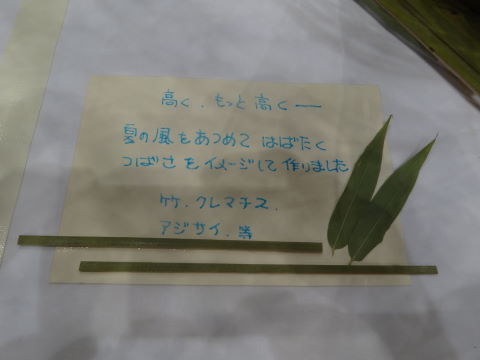 高く、もっと高く――
夏の風をあつめて はばたく
つばさをイメージして作りました
竹、クレマチス、
アジサイ、等